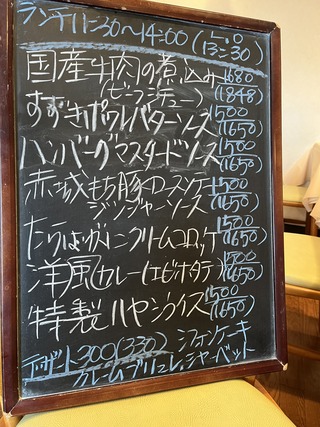 ランチ11:30〜14:00 (L.O
13:30)
国産牛肉の煮込み 1680
(ビーフシチュー) (1848)
すずきポワレバターソース 1500
(1650)
ハンバーグマスタードソース 1500
(1650)
赤城もち豚ロースソテー 1500
ジンジャーソース (1650)
たらばガニクリームコロッケ 1500
(1650)
洋風カレー(エビホタテ) 1500
(1650)
特製ハヤシライス 1500
(1650)
デザート300(330) シフォンケーキ
クレームブリュレ,シャーベット